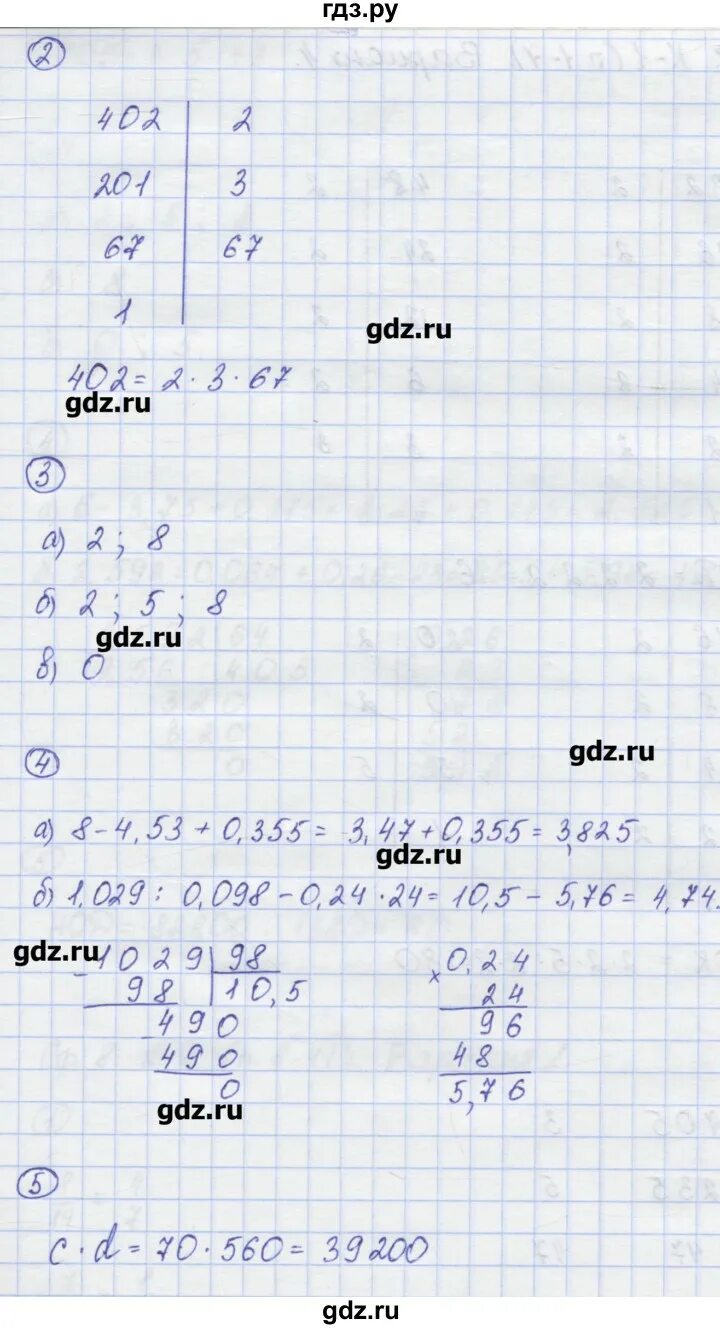 гдз.ру
2
402 | 2
201 | 3
67 | 67
1
gdz.ru
402 = 2 · 3 · 67
gdz.ru
3
а) 2 ; 8
б) 2 ; 5 ; 8
gdz.ru
в) 0
4
gdz.ru
а) 8 - 4,53 + 0,355 = 3,47 + 0,355 = 3,825
gdz.ru
б) 1,029 : 0,098 - 0,24 · 24 = 10,5 - 5,76 = 4,74.
gdz.ru
- 1029 | 98
98 | 10,5
490
490
0
gdz.ru
× 0,24
24
96
48
5,76
5
c · d = 70 · 560 = 39200
gdz.ru